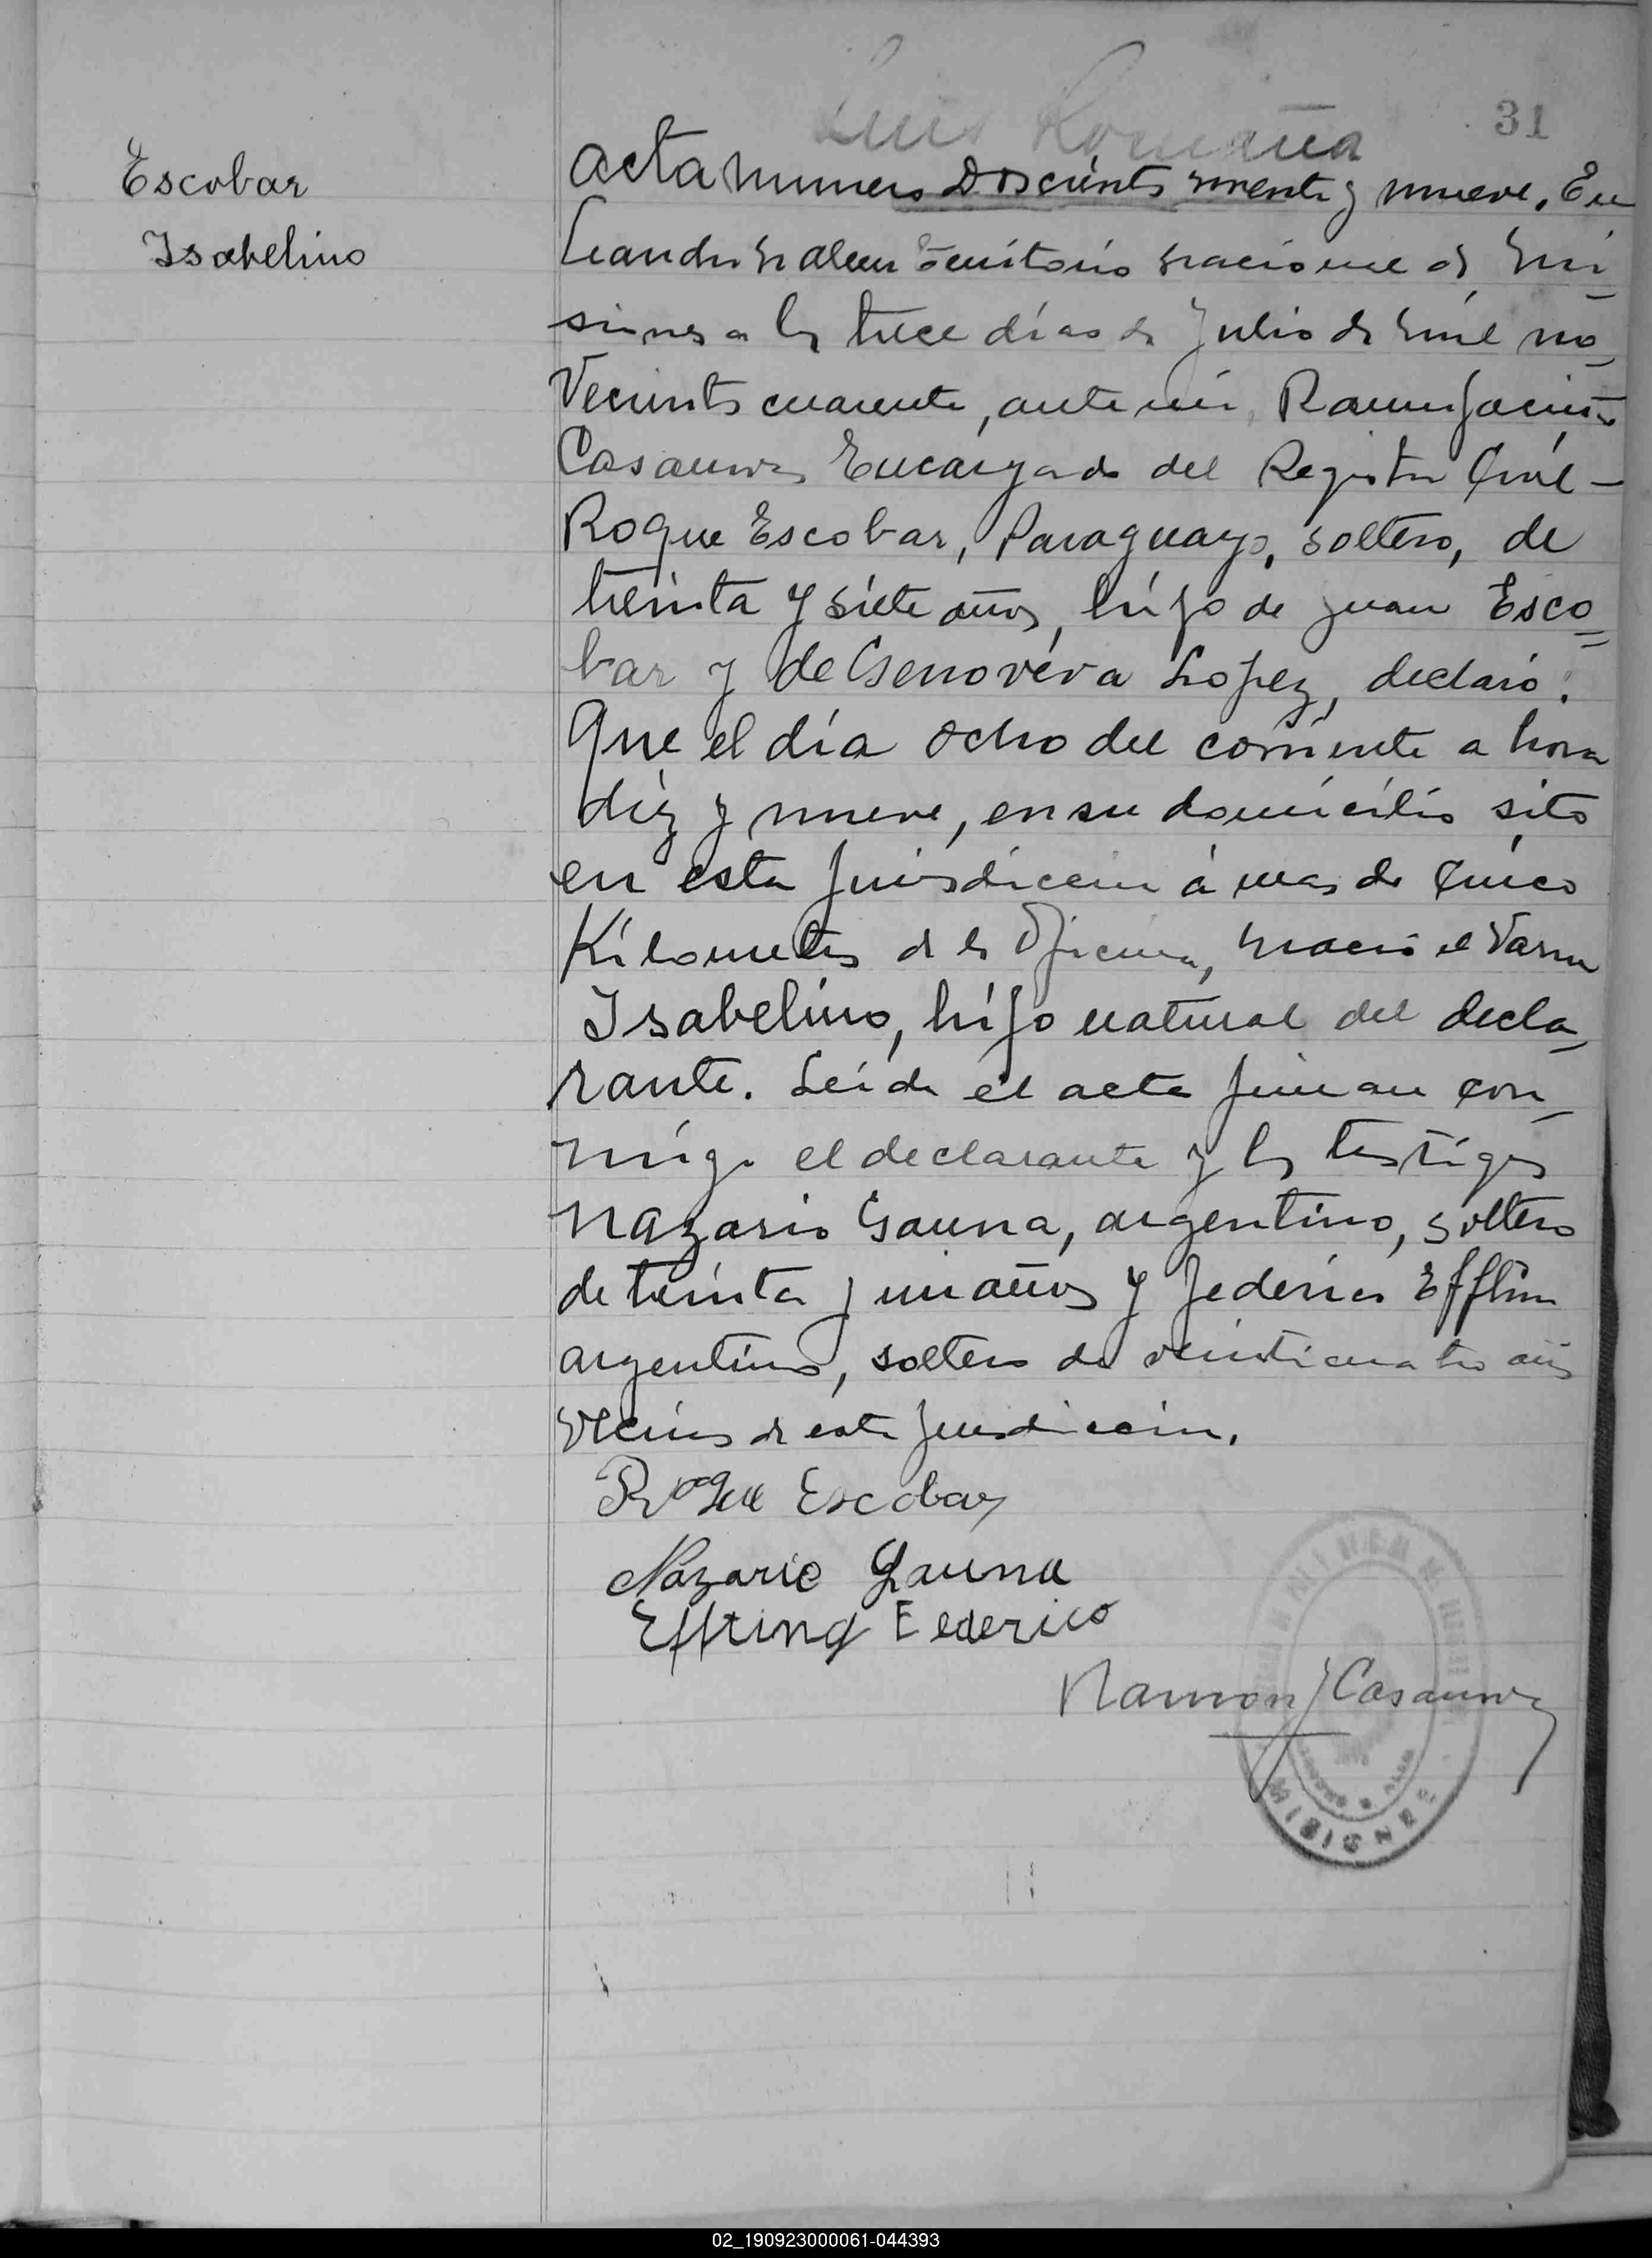 Luis Romaña
31
Escobar
Isabelino
Acta numero Doscientos noventa y nueve. En
Leandro N Alem Territorio Nacional de Mi_
siones a los trece días de Julio de mil no_
vecientos cuarenta, ante mi, Ramon Jacinto
Casanova Encargado del Registro Civil -
Roque Escobar, Paraguayo, soltero, de
treinta y siete años, hijo de Juan Esco=
bar y de Genoveva Lopez, declaró:
Que el día ocho del corriente a hora
diez y nueve, en su domicilio sito
en esta jurisdiccion á mas de cinco
Kilometros de la Oficina, nació el Varon
Isabelino, hijo natural del decla_
rante. Leída el acta firman con_
migo el declarante y los testigos
Nazario Gauna, argentino, soltero
de treinta y un años y Federico
argentino, soltero de veinticuatro años
vecinos de esta jurisdiccion.
Roque Escobar
Nazario Gauna
Effting Federico
Ramon J Casanova
MISIONES
02_190923000061-044393